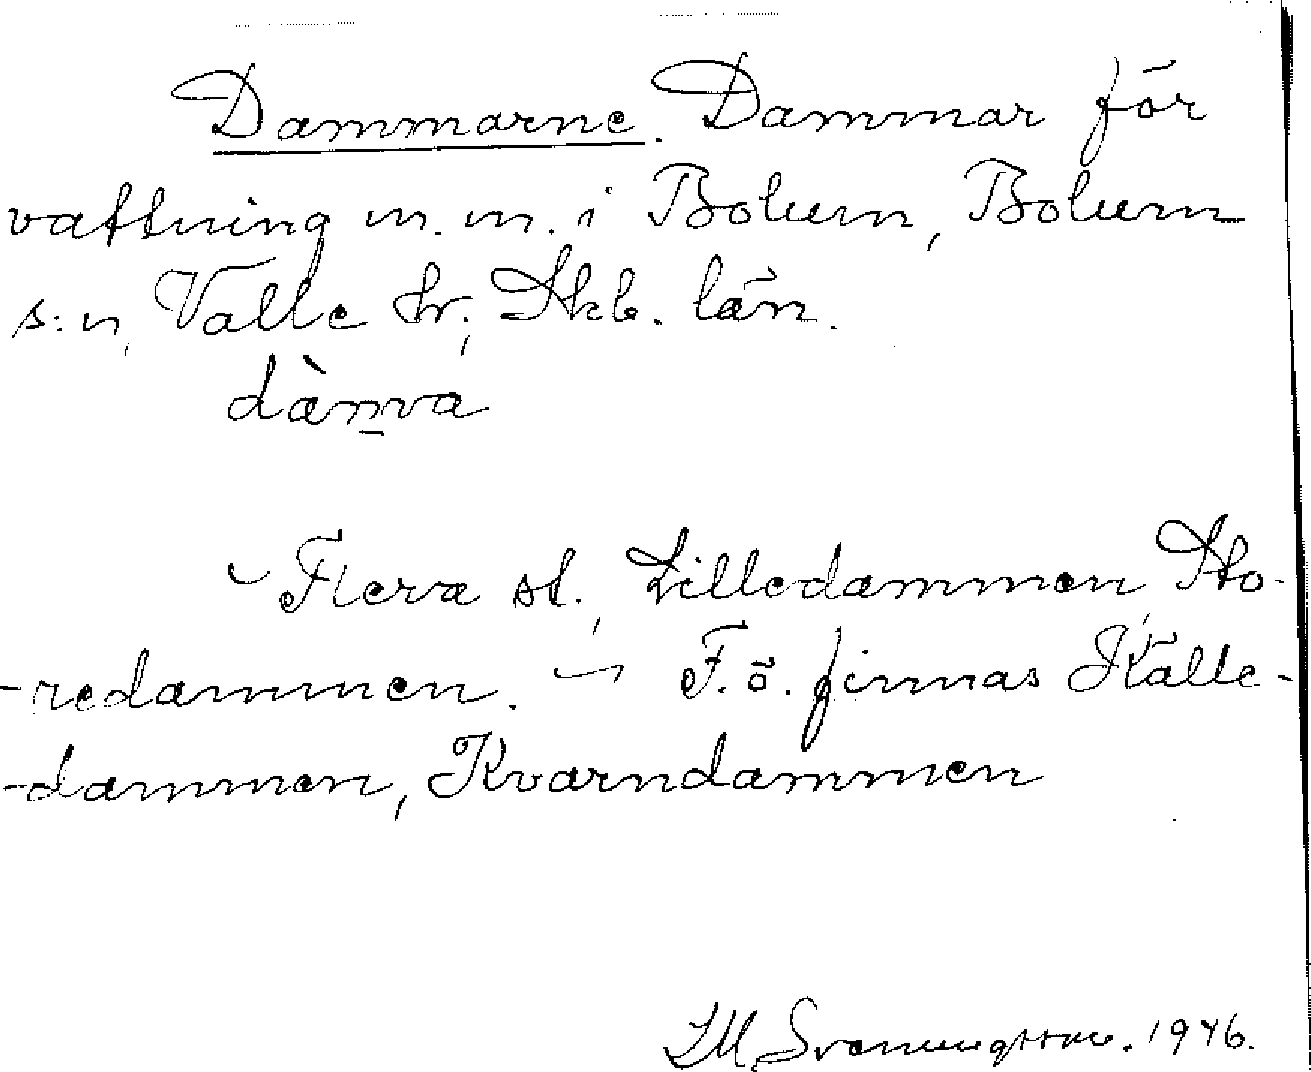 Dammarne. Dammar för
vattning m. m. i Bolum, Bolum
s:n, Valle hr, Skb. län.
dàm̲va
Flera st., Lilledammen, Sto-
-redammen. F. ö. finnas Källe-
-dammen, Kvarndammen
Svenungsson. 1946.